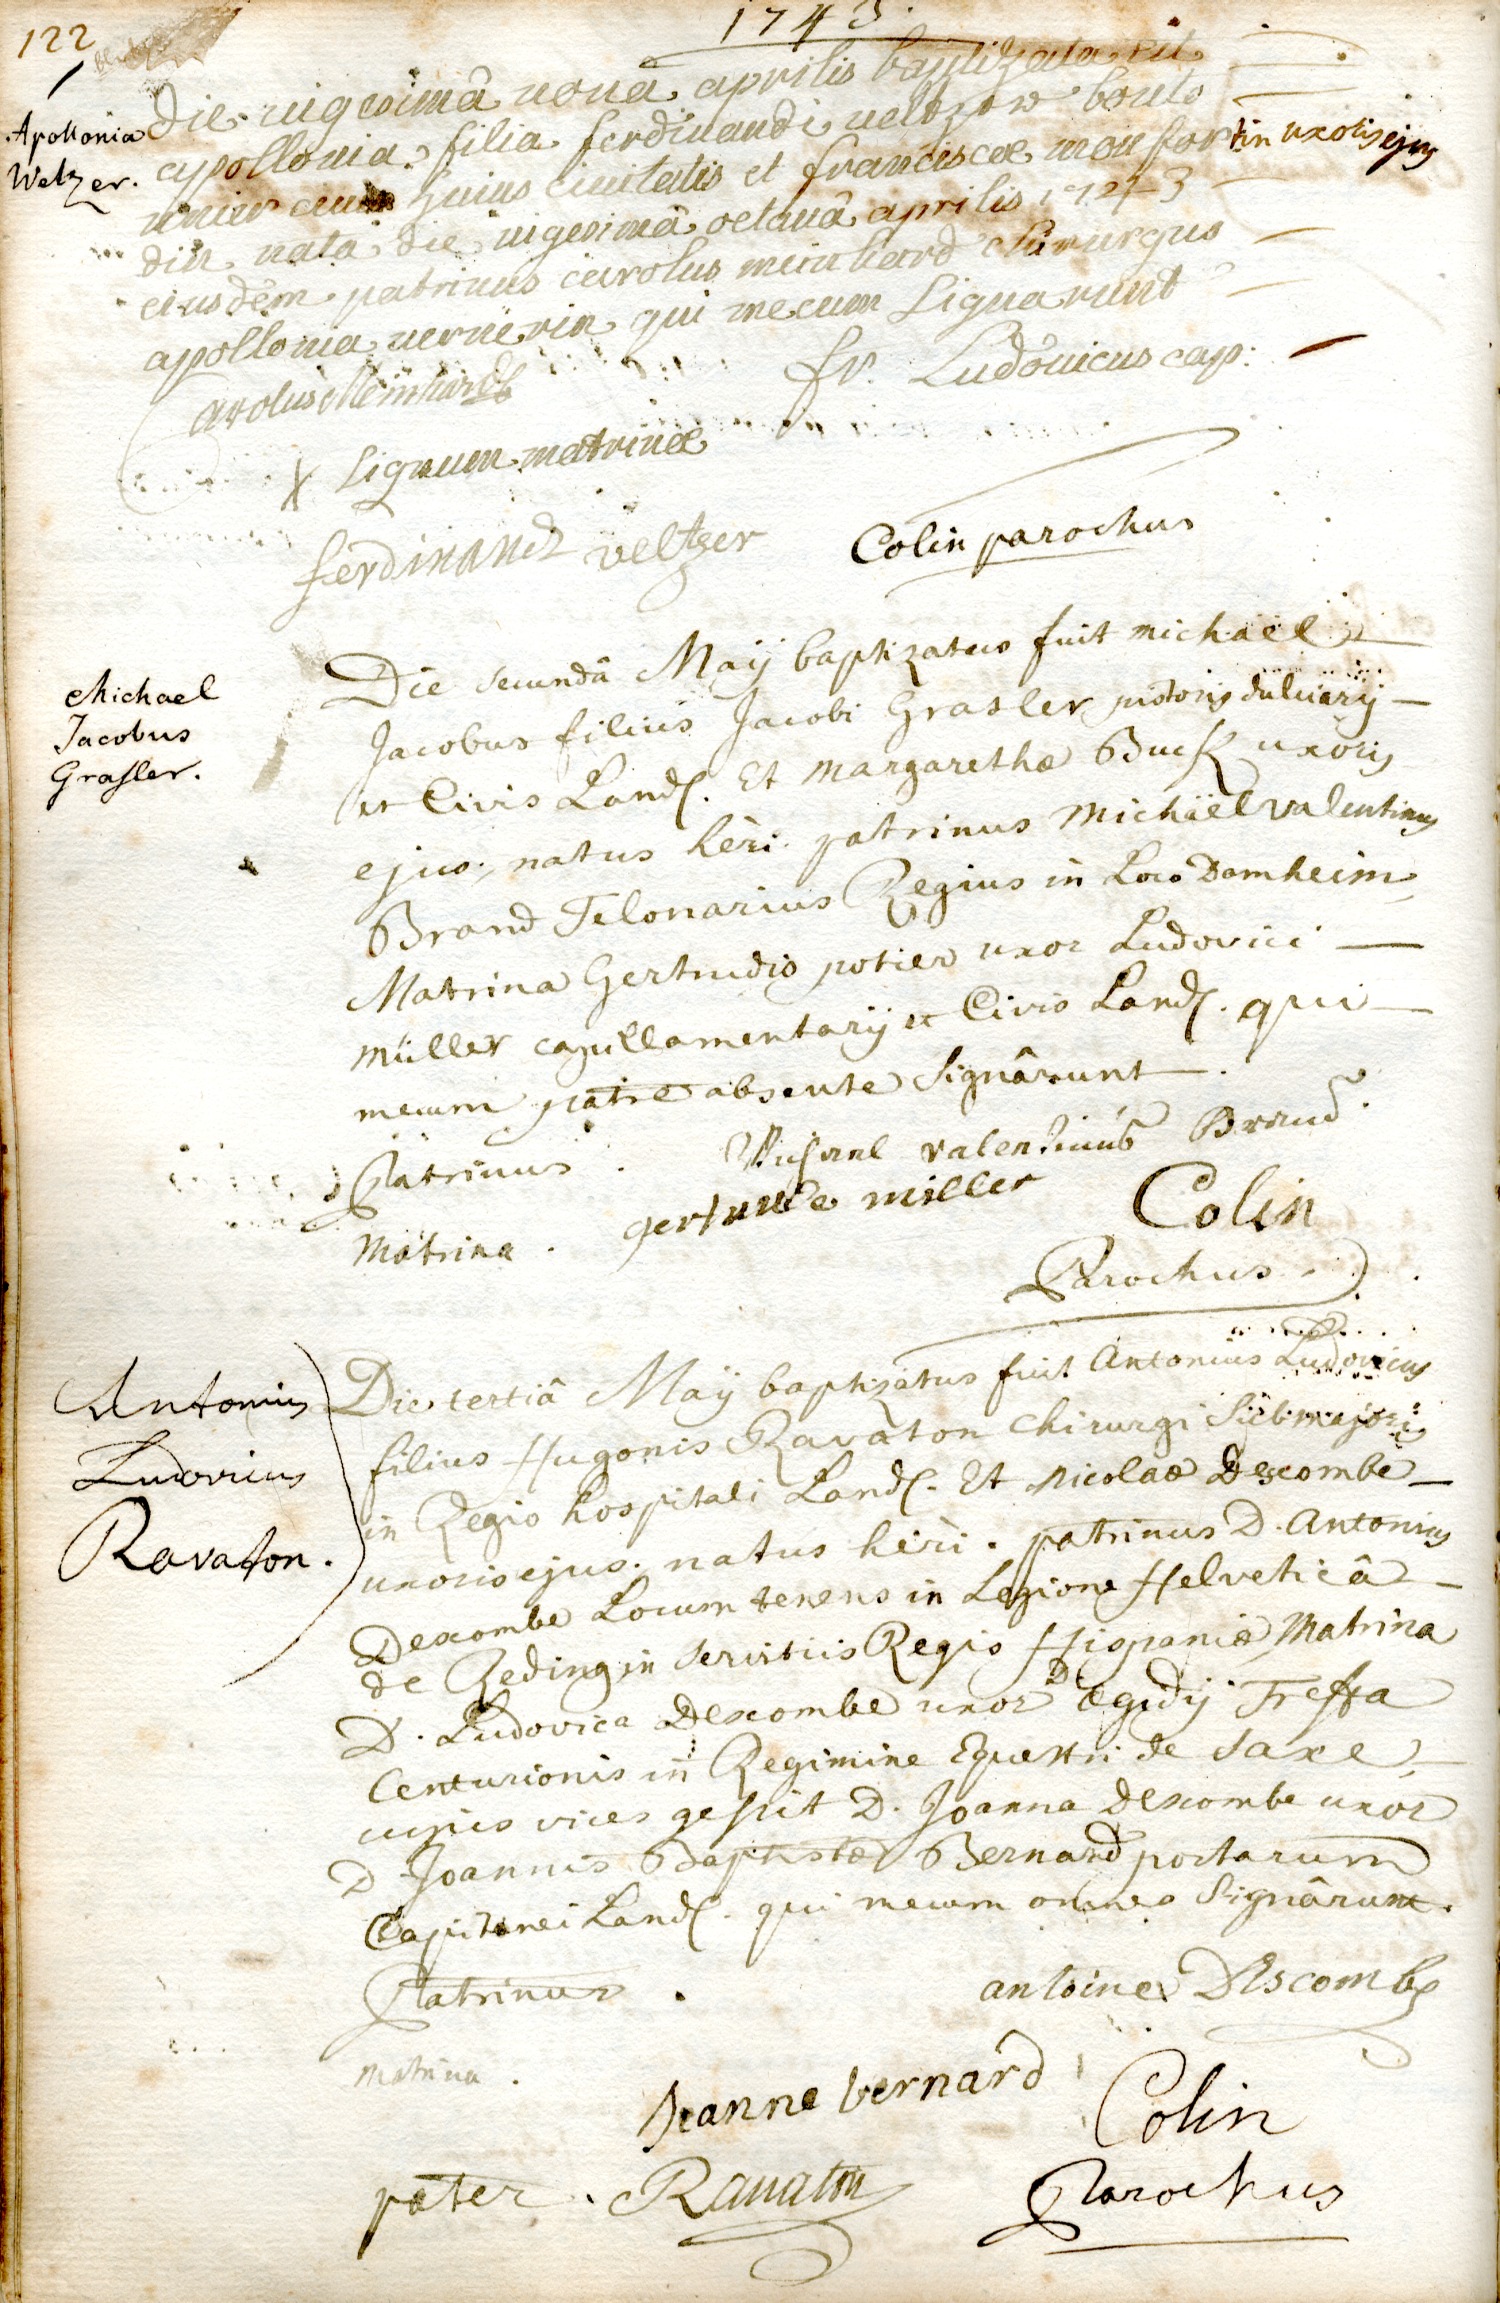 122
1743.
Apollonia
Welzer.
Die vigesimâ nona aprilis baptizata fuit
apollonia filia ferdinandi veltzer
huius civitatis et franciscæ monfortin uxoris ejus
nata die vigesimâ octavâ aprilis 1743
eiusdem patrinus carolus meinhard chirurgus
apollonia wernerin qui mecum signarunt
Carolus Meinhardt
fr. Ludovicus cap:
x signum matrinæ
ferdinand veltzer
Colin parochus
Michael
Jacobus
Grasler.
Die secundâ Maÿ baptizatus fuit michaël
Jacobus filius Jacobi Grasler pistoris dulciarÿ
et Civis Land. Et margarethæ Buck uxoris
ejus, natus heri. patrinus michaël valentinus
Brand Telonarius Regius in Loco Damheim,
Matrina Gertrudis potier uxor Ludovici
müller capillamentarÿ et Civis Land. qui
mecum patre absente signârunt.
Patrinus. Michael valentinus Brand.
Matrina. gertrude miller
Colin
Parochus.
Antonius
Ludovicus
Ravaton.
Die tertiâ Maÿ baptizatus fuit Antonius Ludovicus
filius Hugonis Ravaton Chirurgi majoris
in Regio hospitali Land. Et Nicolaæ Descombe
uxoris ejus. natus heri. patrinus D. Antonius
Descombe Locum tenens in Legione Helveticâ
de Reding in servitiis Regis Hispaniæ, Matrina
D. Ludovica Descombe uxor D. Ægidÿ Treffa
Centurionis in Regimine Equestri de Saxe,
cujus vices gessit D. Joanna Descombe uxor
D. Joannis Baptistæ Bernard portarum
Capitanei Land. qui mecum omnes signârunt.
Patrinus. antoine Descombe
Matrina. Jeanne bernard
Colin
pater. Ravaton
Parochus